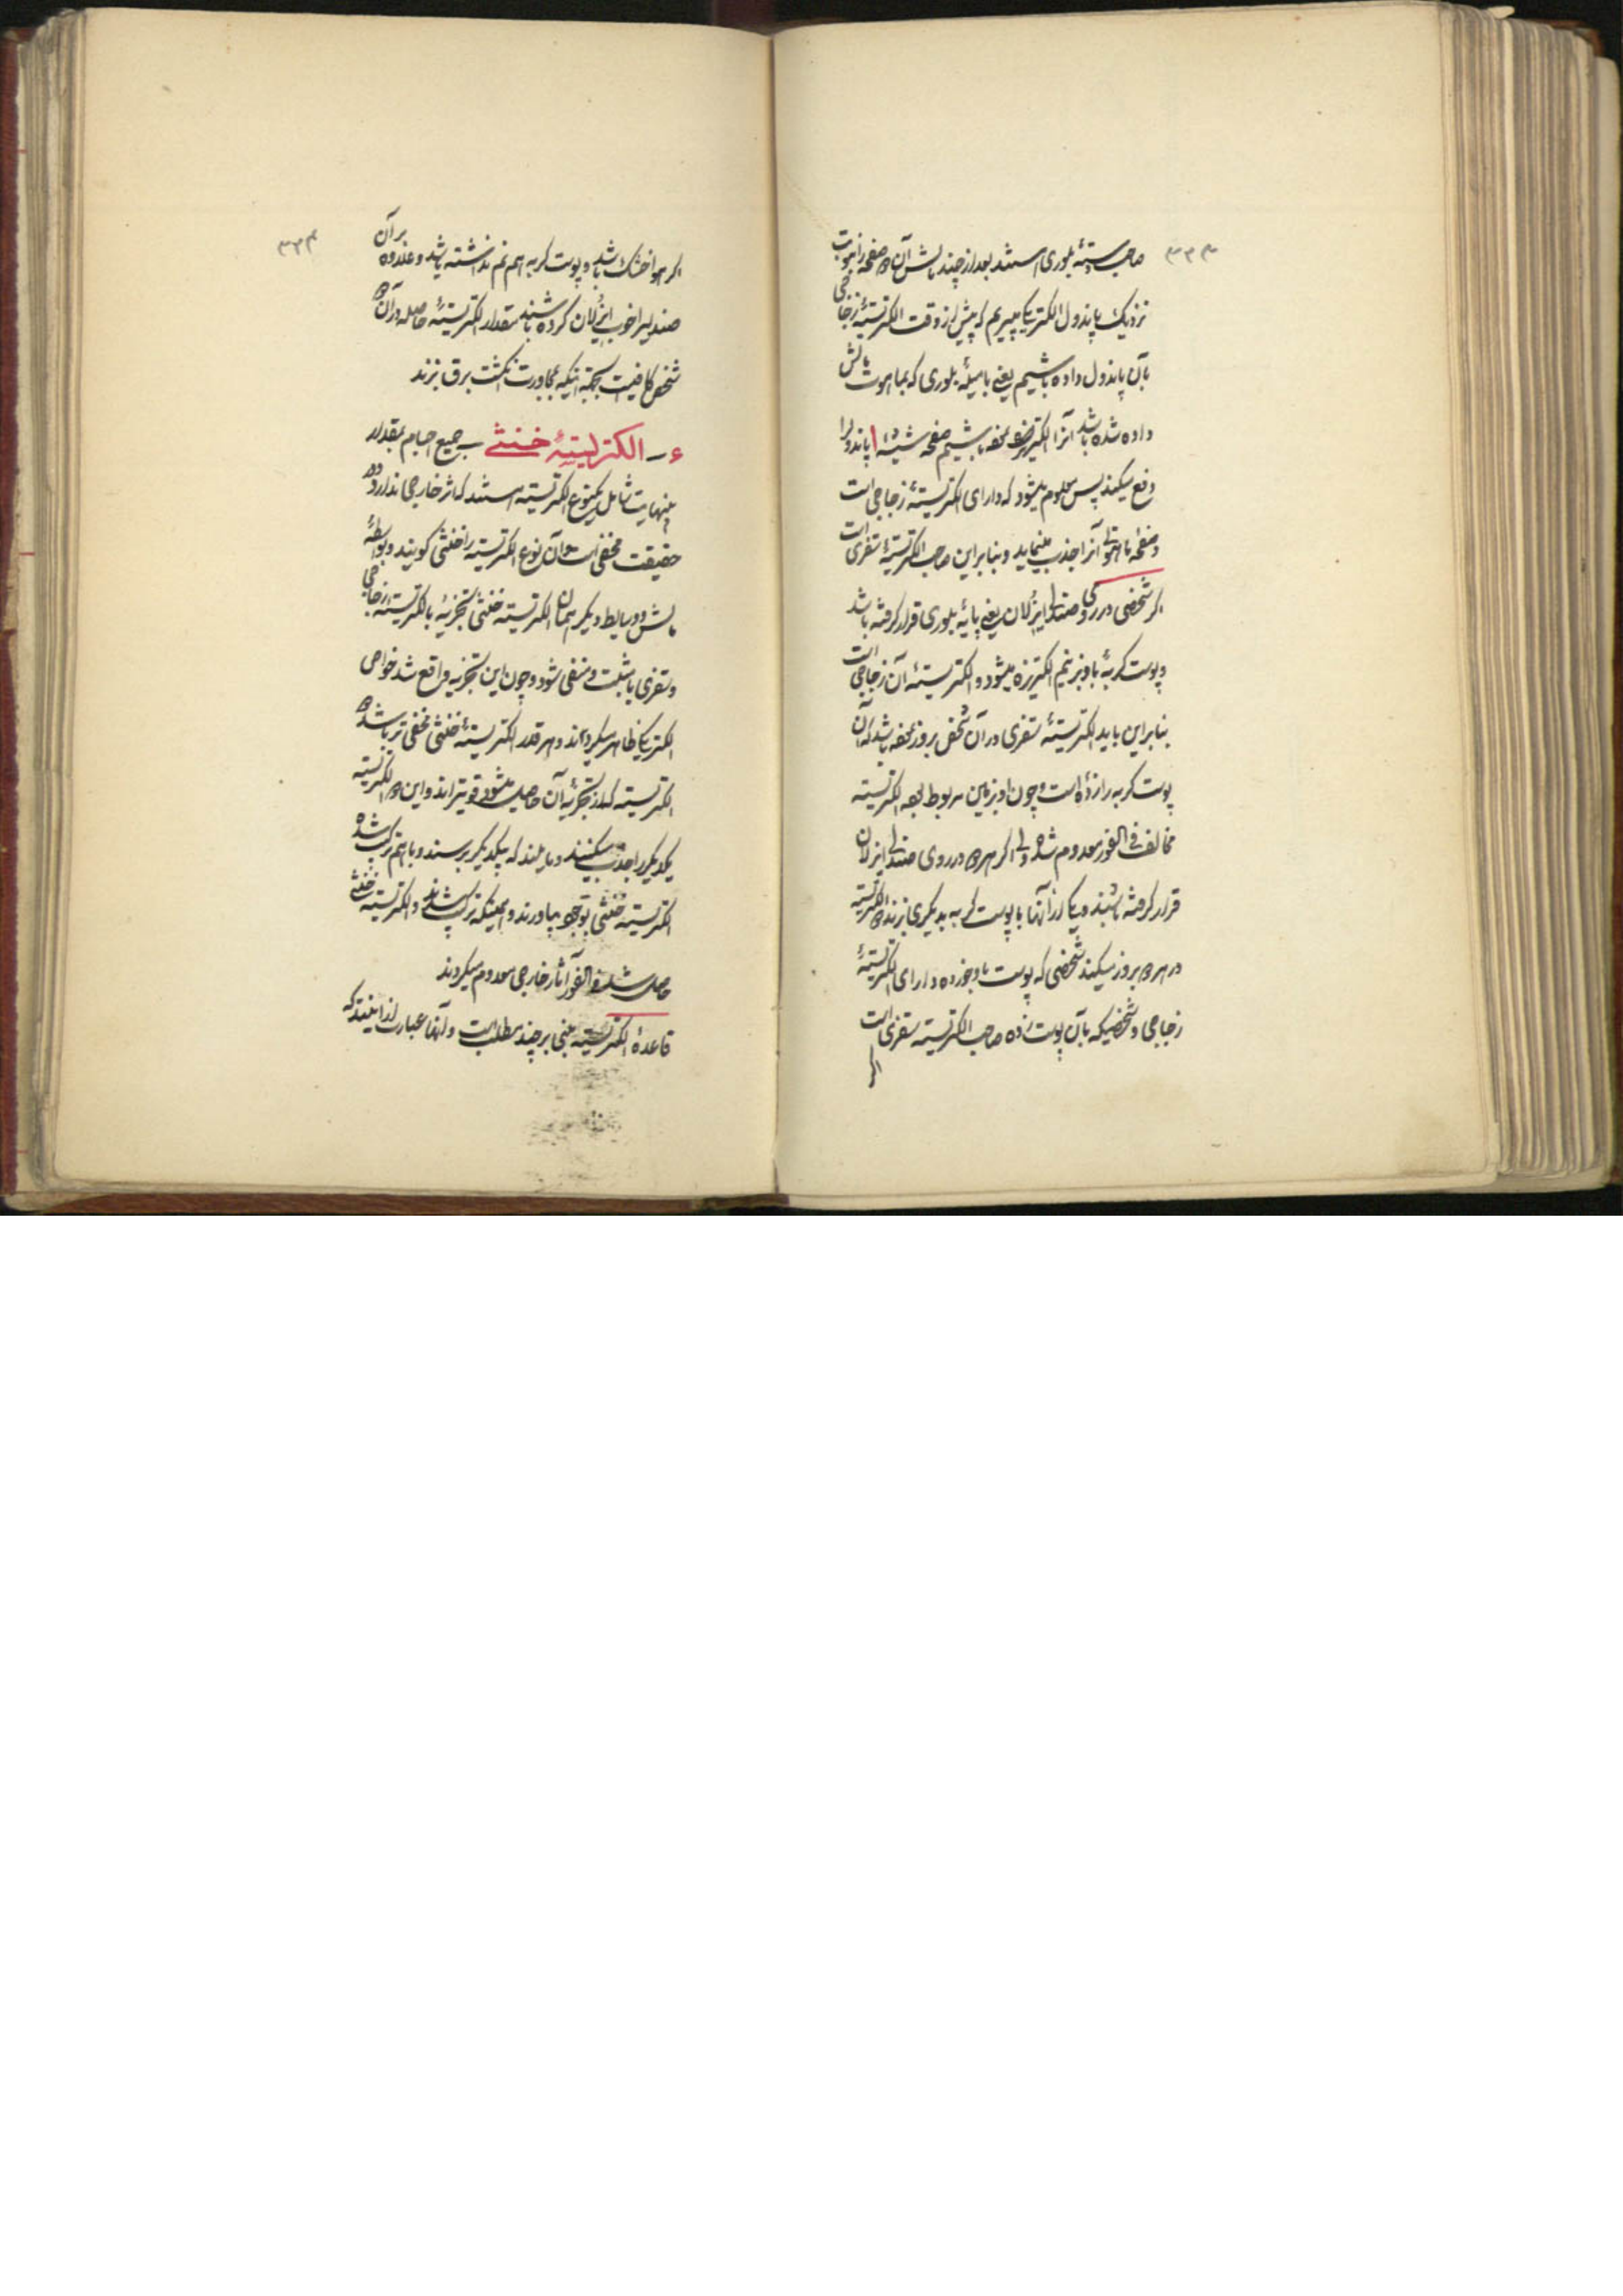 ۳۲۳
صاحب دستهٔ بلوری استند بعد از چند مالش آن دو صفحه را بنوبت
نزدیک پاندول الکتریکی میبریم که پیش از وقت الکتریستهٔ زجاجی
بآن پاندول داده باشیم یعنی با میلهٔ بلوری که بماهوت مالش
داده شده باشد آنرا الکتریزه نموده باشیم صفحه شیشهٔ پاندول را
دفع میکند پس معلوم میشود که دارای الکتریستهٔ زجاجی است
و صفحه ماهوتی آنرا جذب مینماید و بنابراین صاحب الکتریستهٔ سقزی است
اگر شخصی در روی صندلی ایزلان یعنی پایهٔ بلوری قرار گرفته باشد
و پوست گربهٔ باو بزنیم الکتریزه میشود و الکتریستهٔ آن زجاجی است
بنابراین باید الکتریستهٔ سقزی در آن شخص بروز نموده باشد که آن
پوست گربه را زده است و چون او بزمین مربوط بوده الکتریسته
مخالف فی الفور معدوم شده ولی اگر هر دو در روی صندلی ایزلان
قرار گرفته باشند و یکی از آنها با پوست گربه بدیگری بزند دو الکتریسته
در هر دو بروز میکند شخصی که پوست باو خورده دارای الکتریستهٔ
زجاجی و شخصیکه بآن پوست زده صاحب الکتریسته سقزی است
اگر
۳۲۴
اگر هوا خشک باشد و پوست گربه هم نم نداشته باشد و علاوه بر آن
صندلی را خوب ایزلان کرده باشند مقدار الکتریستهٔ حاصله در آن دو
شخص کافیست بجهة اینکه بمجاورت انگشت برق بزند
۴ ــ الکتریستهٔ خنثی ــ جمیع اجسام بمقدار
بینهایت شامل یکنوع الکتریسته استند که اثر خارجی ندارد و در
حقیقت مخفی است و آن نوع الکتریسته را خنثی گویند و بواسطهٔ
مالش و وسایط دیگر همان الکتریسته خنثی تجزیه بالکتریستهٔ زجاجی
و سقزی یا مثبت و منفی شود و چون این تجزیه واقع شد خواص
الکتریکی ظاهر میگردند و هر قدر الکتریستهٔ خنثی مخفی تر باشد دو
الکتریسته که از تجزیهٔ آن حاصل میشود قویترند و این دو الکتریسته
یکدیگر را جذب میکنند و مایلند که بیکدیگر برسند و با هم مرکب شده
الکتریسته خنثی بوجود بیاورند و همینکه مرکب شدند و الکتریسته خنثی
حاصل شد فی الفور آثار خارجی معدوم میگردند
قاعدهٔ الکتریسته مبنی بر چند مطلب است و آنها عبارت از اینند که